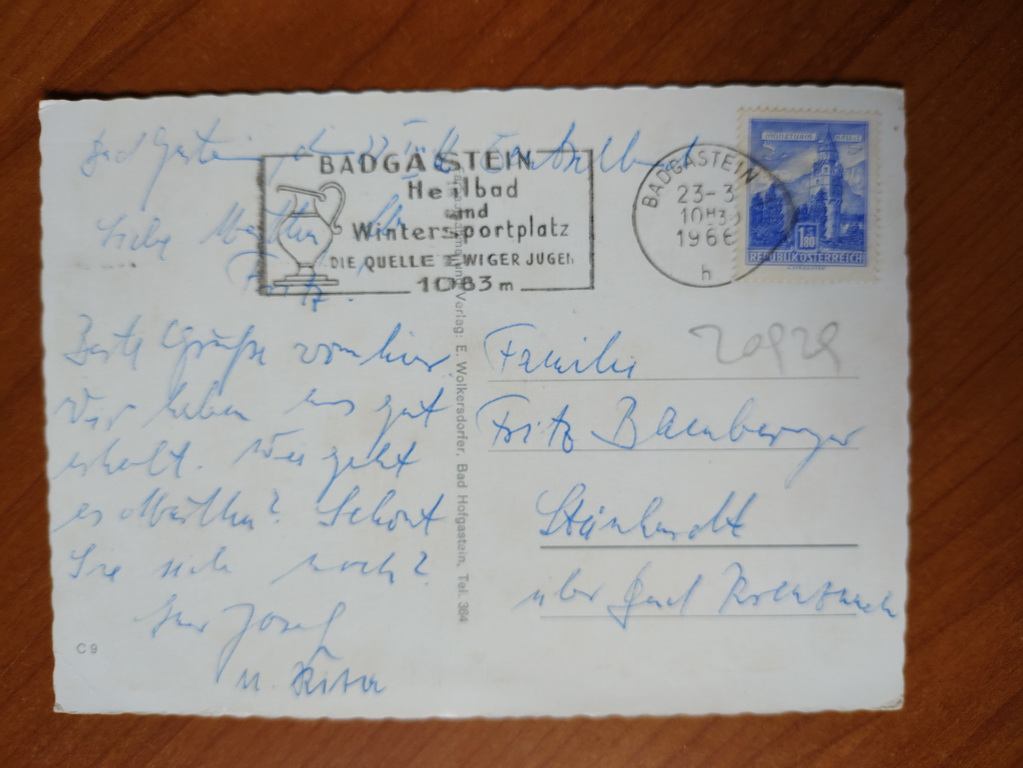 Bad Gastein, den 22.
Liebe Martha
Fritz!
Beste Grüße von hier.
Wir haben uns gut
erholt. Wie geht
es Martha? Schont
Sie sich noch?
Euer Josef
u. Rita
C 9
BADGASTEIN
Heilbad
und
Wintersportplatz
DIE QUELLE EWIGER JUGEND
1083 m
Verlag: E. Wolkersdorfer, Bad Hofgastein, Tel. 364
BADGASTEIN
23-3
1966
h
1.80
REPUBLIK ÖSTERREICH
20929
Familie
Fritz Bamberger
Steinhardt
über Bad Kreuznach